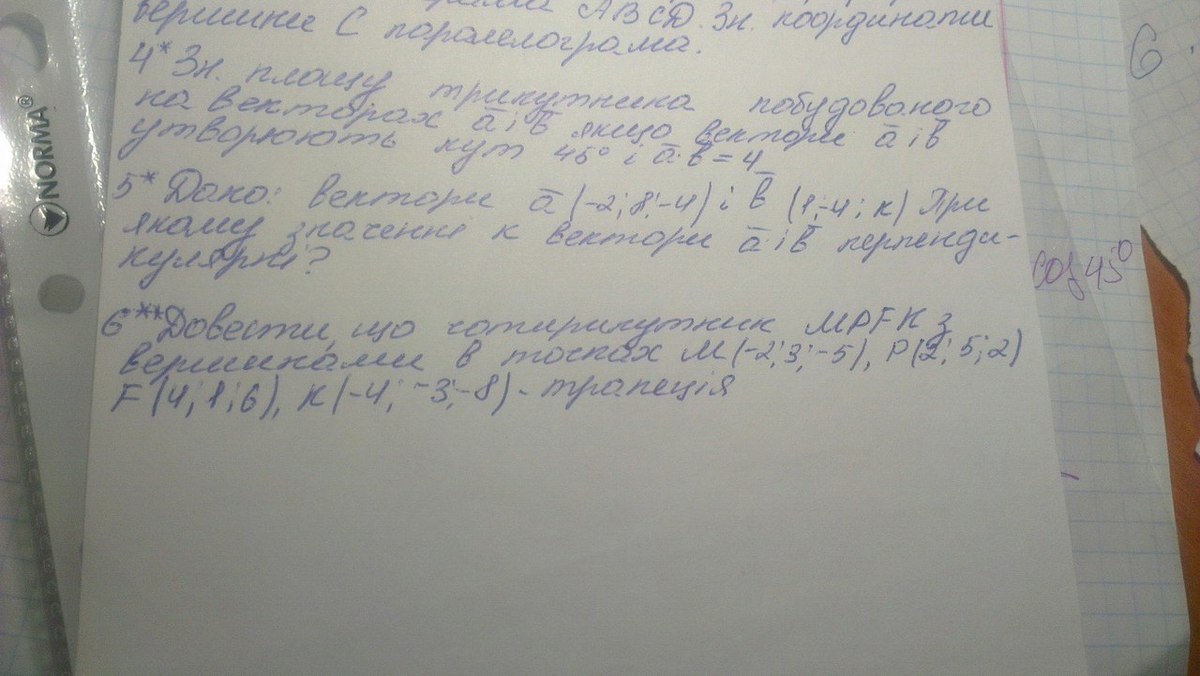 АВСD. Зн. координати
вершини С паралелограма.
4* Зн. площу трикутника побудованого
на векторах ā і b̄ якщо вектори ā і b̄
утворюють кут 45° і ā·b̄ = 4
5* Дано: вектори ā (-2; 8; -4) і b̄ (1; -4; к) При
якому значенні к вектори ā і b̄ перпенди-
кулярні?
6** Довести, що чотирикутник МРFК з
вершинами в точках М (-2; 3; -5), Р (2; 5; 2)
F (4; 1; 6), К (-4; -3; -8) - трапеція
NORMA®
cos 45°
6